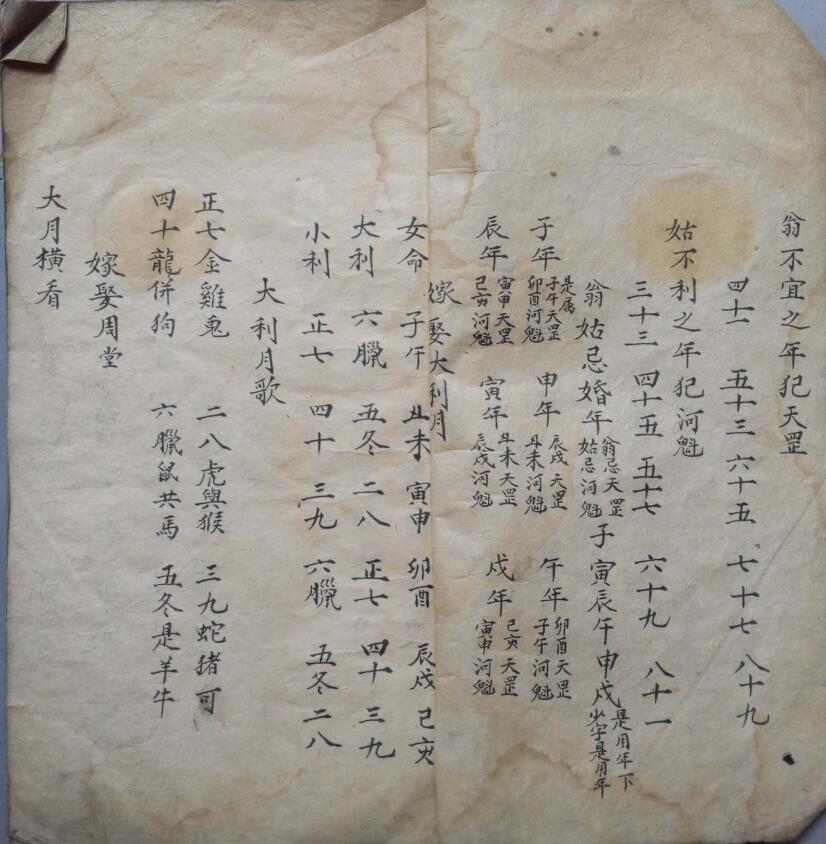 翁不宜之年犯天罡
四十一 五十三 六十五 七十七 八十九
姑不利之年犯河魁
三十三 四十五 五十七 六十九 八十一
翁姑忌婚年 翁忌天罡 姑忌河魁 子寅辰午申戌 是用年下 少字是月年
子年 是属 子午天罡 卯酉河魁 申年 辰戌天罡 丑未河魁 午年 卯酉天罡 子午河魁
辰年 寅申天罡 己亥河魁 寅年 丑未天罡 辰戌河魁 戌年 己亥天罡 寅申河魁
嫁娶大利月
女命 子午 丑未 寅申 卯酉 辰戌 己亥
大利 六臘 五冬 二八 正七 四十 三九
小利 正七 四十 三九 六臘 五冬 二八
大利月歌
正七金雞兔 二八虎與猴 三九蛇猪可
四十龍併狗 六臘鼠共馬 五冬是羊牛
嫁娶周堂
大月橫看